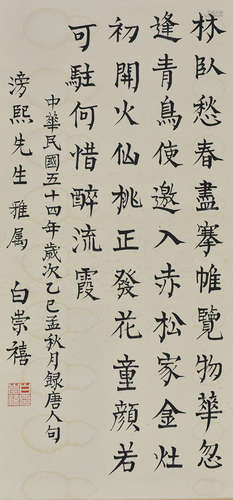 林臥愁春盡搴帷覽物華忽
逢青鳥使邀入赤松家金灶
初開火仙桃正發花童顏若
可駐何惜醉流霞
中華民國五十四年歲次乙巳孟秋月録唐人句
滂熙先生雅属 白崇禧